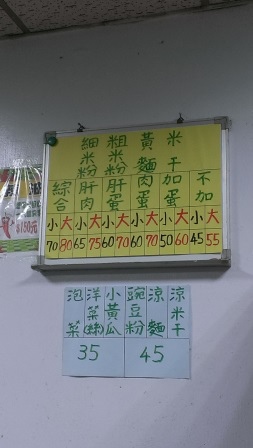 細米粉 粗米粉 黃麵 米干
綜合 肝肉 肝蛋 肉蛋 加蛋 不加
小 大 小 大 小 大 小 大 小 大 小 大
70 80 65 75 60 70 60 70 50 60 45 55
泡菜 洋菜(絲) 小黃瓜 豌豆粉 涼麵 涼米干
35 45